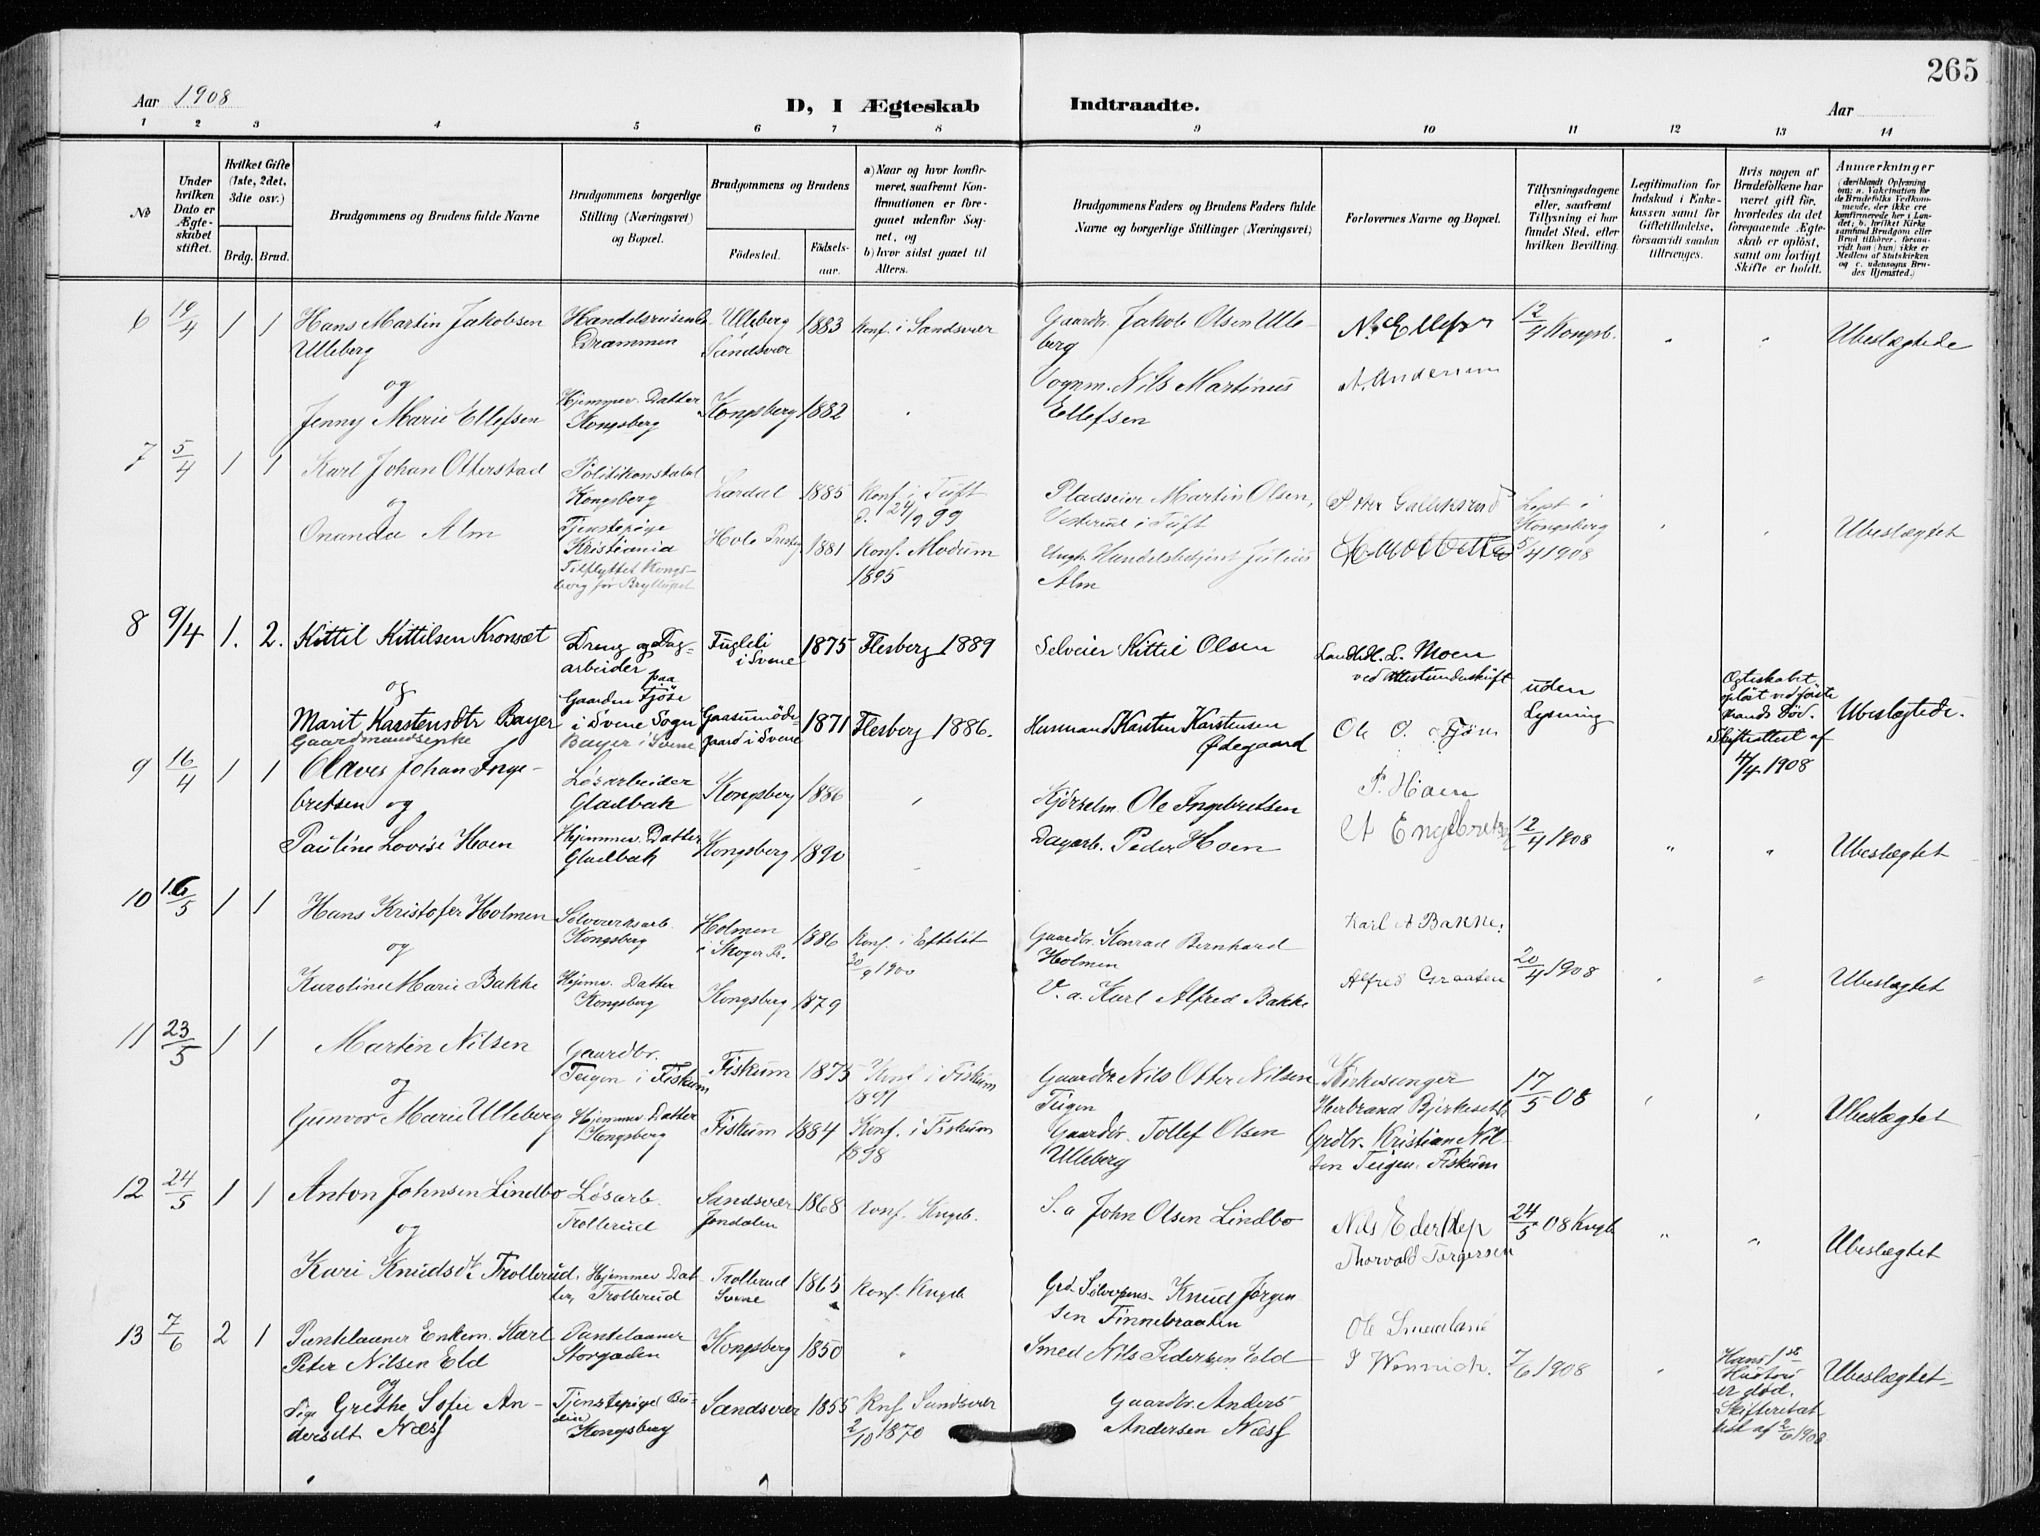 265
Aar 1908
D, I Ægteskab Indtraadte.
Aar
1 2 3 4 5 6 7 8 9 10 11 12 13 14
No
Under hvilken Dato er Ægteskabet stiftet.
Hvilket Gifte (1ste, 2det, 3die osv.)
Brdg. Brud.
Brudgommens og Brudens fulde Navne
Brudgommens borgerlige Stilling (Næringsvei) og Bopæl.
Brudgommens og Brudens
Fødested. Fødselsaar.
a) Naar og hvor konfirmeret, saafremt Konfirmationen er foregaaet udenfor Sognet, og
b) hvor sidst gaaet til Alters.
Brudgommens Faders og Brudens Faders fulde Navne og borgerlige Stillinger (Næringsvei)
Forlovernes Navne og Bopæl.
Tillysningsdagene eller, saafremt Tillysning ei har fundet Sted, efter hvilken Bevilling.
Legitimation for Indskud i Enkekassen samt for Giftetilladelse, forsaavidt saadan tiltrænges.
Hvis nogen af Brudefolkene har været gift før, hvorledes da det foregaaende Ægteskab er opløst, samt om lovligt Skifte er holdt.
Anmærkninger
6 19/4 1 1
Hans Martin Jakobsen Ulleberg
og
Jenny Marie Ellefsen
Drammen
Hjemmev. Datter Kongsberg
Ulleberg Sandsvær 1883 Konf. i Sandsvær
Kongsberg 1882
Gaardbr. Jakob Olsen Ulleberg
Vognm. Nils Martinus Ellefsen
A. Andersen
12/4 Kongsb.
Ubeslægtede
7 5/4 1 1
Karl Johan Otterstad
og
Onanda Alm
Politikonstabel Kongsberg
Tjenestepige Kristiania
Tilflyttet Kongsberg før Bryllupet
Lærdal 1885 Konf. i Tuft d. 24/9 99
Hole 1881 Konf. Modum 1895
Pladseier Martin Olsen, Vesterud i Tuft
Julius Alm
Lyst i Kongsberg 5/4 1908
Ubeslægtet
8 9/4 1. 2.
Kittil Kittilsen Kronsæt
og
Marit Karstensdtr Bayer
Gaardmandsenke
Dreng og Dagarbeider paa Gaarden Fjøse i Svene Sogn
Bayer i Svene
Fugleli i Svene 1875 Flesberg 1889
1871 Flesberg 1886.
Selveier Kittil Olsen
Husmand Karsten Karstensen Ødegaard
Landhdl. L. Moen
uden Lysning
Ægteskabet opløst ved første Mands Død.
Skifteattest af 4/4 1908
Ubeslægtede.
9 16/4 1 1
Olaves Johan Ingebretsen og
Pauline Lovise Hoen
Løsarbeider Gladbak
Hjemmev. Datter Gladbak
Kongsberg 1886
Kongsberg 1890
Ole Ingebretsen
Dagarb. Peder Hoen
P. Hoen
12/4 1908
Ubeslægtet
10 16/5 1 1
Hans Kristofer Holmen
og
Karoline Marie Bakke
Sølvverksarb. Kongsberg
Hjemv. Datter Kongsberg
Holmen i Skoger Pr. 1886 Konf. i Efteløt 30/9 1900
Kongsberg 1879
Gaardbr. Konrad Bernhard Holmen
V. a. Karl Alfred Bakke
Karl A Bakke.
Alfred Graaten
20/4 1908
Ubeslægtet
11 23/5 1 1
Martin Nilsen
og
Gunvor Marie Ulleberg
Gaardbr. Teigen i Fiskum
Hjemmev. Datter Kongsberg
Fiskum 1875 Konf. i Fiskum 1891
Fiskum 1884 Konf. i Fiskum 1898
Gaardbr. Nils Otter Nilsen Teigen
Gaardbr. Tollef Olsen Ulleberg
Kirkesanger Herbrand Bjerkeset
Grdbr. Kristian Nilsen Teigen, Fiskum
17/5 08
Ubeslægtet
12 24/5 1 1
Anton Johnsen Lindbo
og
Kari Knudsdtr. Trollerud
Løsarb. Trollerud
Hjemmev. Datter, Trollerud
Sandsvær Jondalen 1868 Konf. Kngsb.
Trollerud Svene 1865 Konf. Kngsb
S. a John Olsen Lindbo
Knud Jørgensen Finnebraaten
Thorvald Torgersen
24/5 08 Kngb
Ubeslægtet
13 7/6 2 1
Pantelaaner Enkem. Karl Peter Nilsen Eld
og
Pige Grethe Sofie Andersdt Næss
Pantelaaner Storgaden
Kongsberg
Kongsberg 1850
Sandsvær 1855 Knf. Sandsvær 2/10 1870
Smed Nils Pedersen Eld
Gaardbr. Anders Andersen Næss
7/6 1908
Hans 1ste Hustru er død.
Skifteretsattest af 2/6 1908.
Ubeslægtet